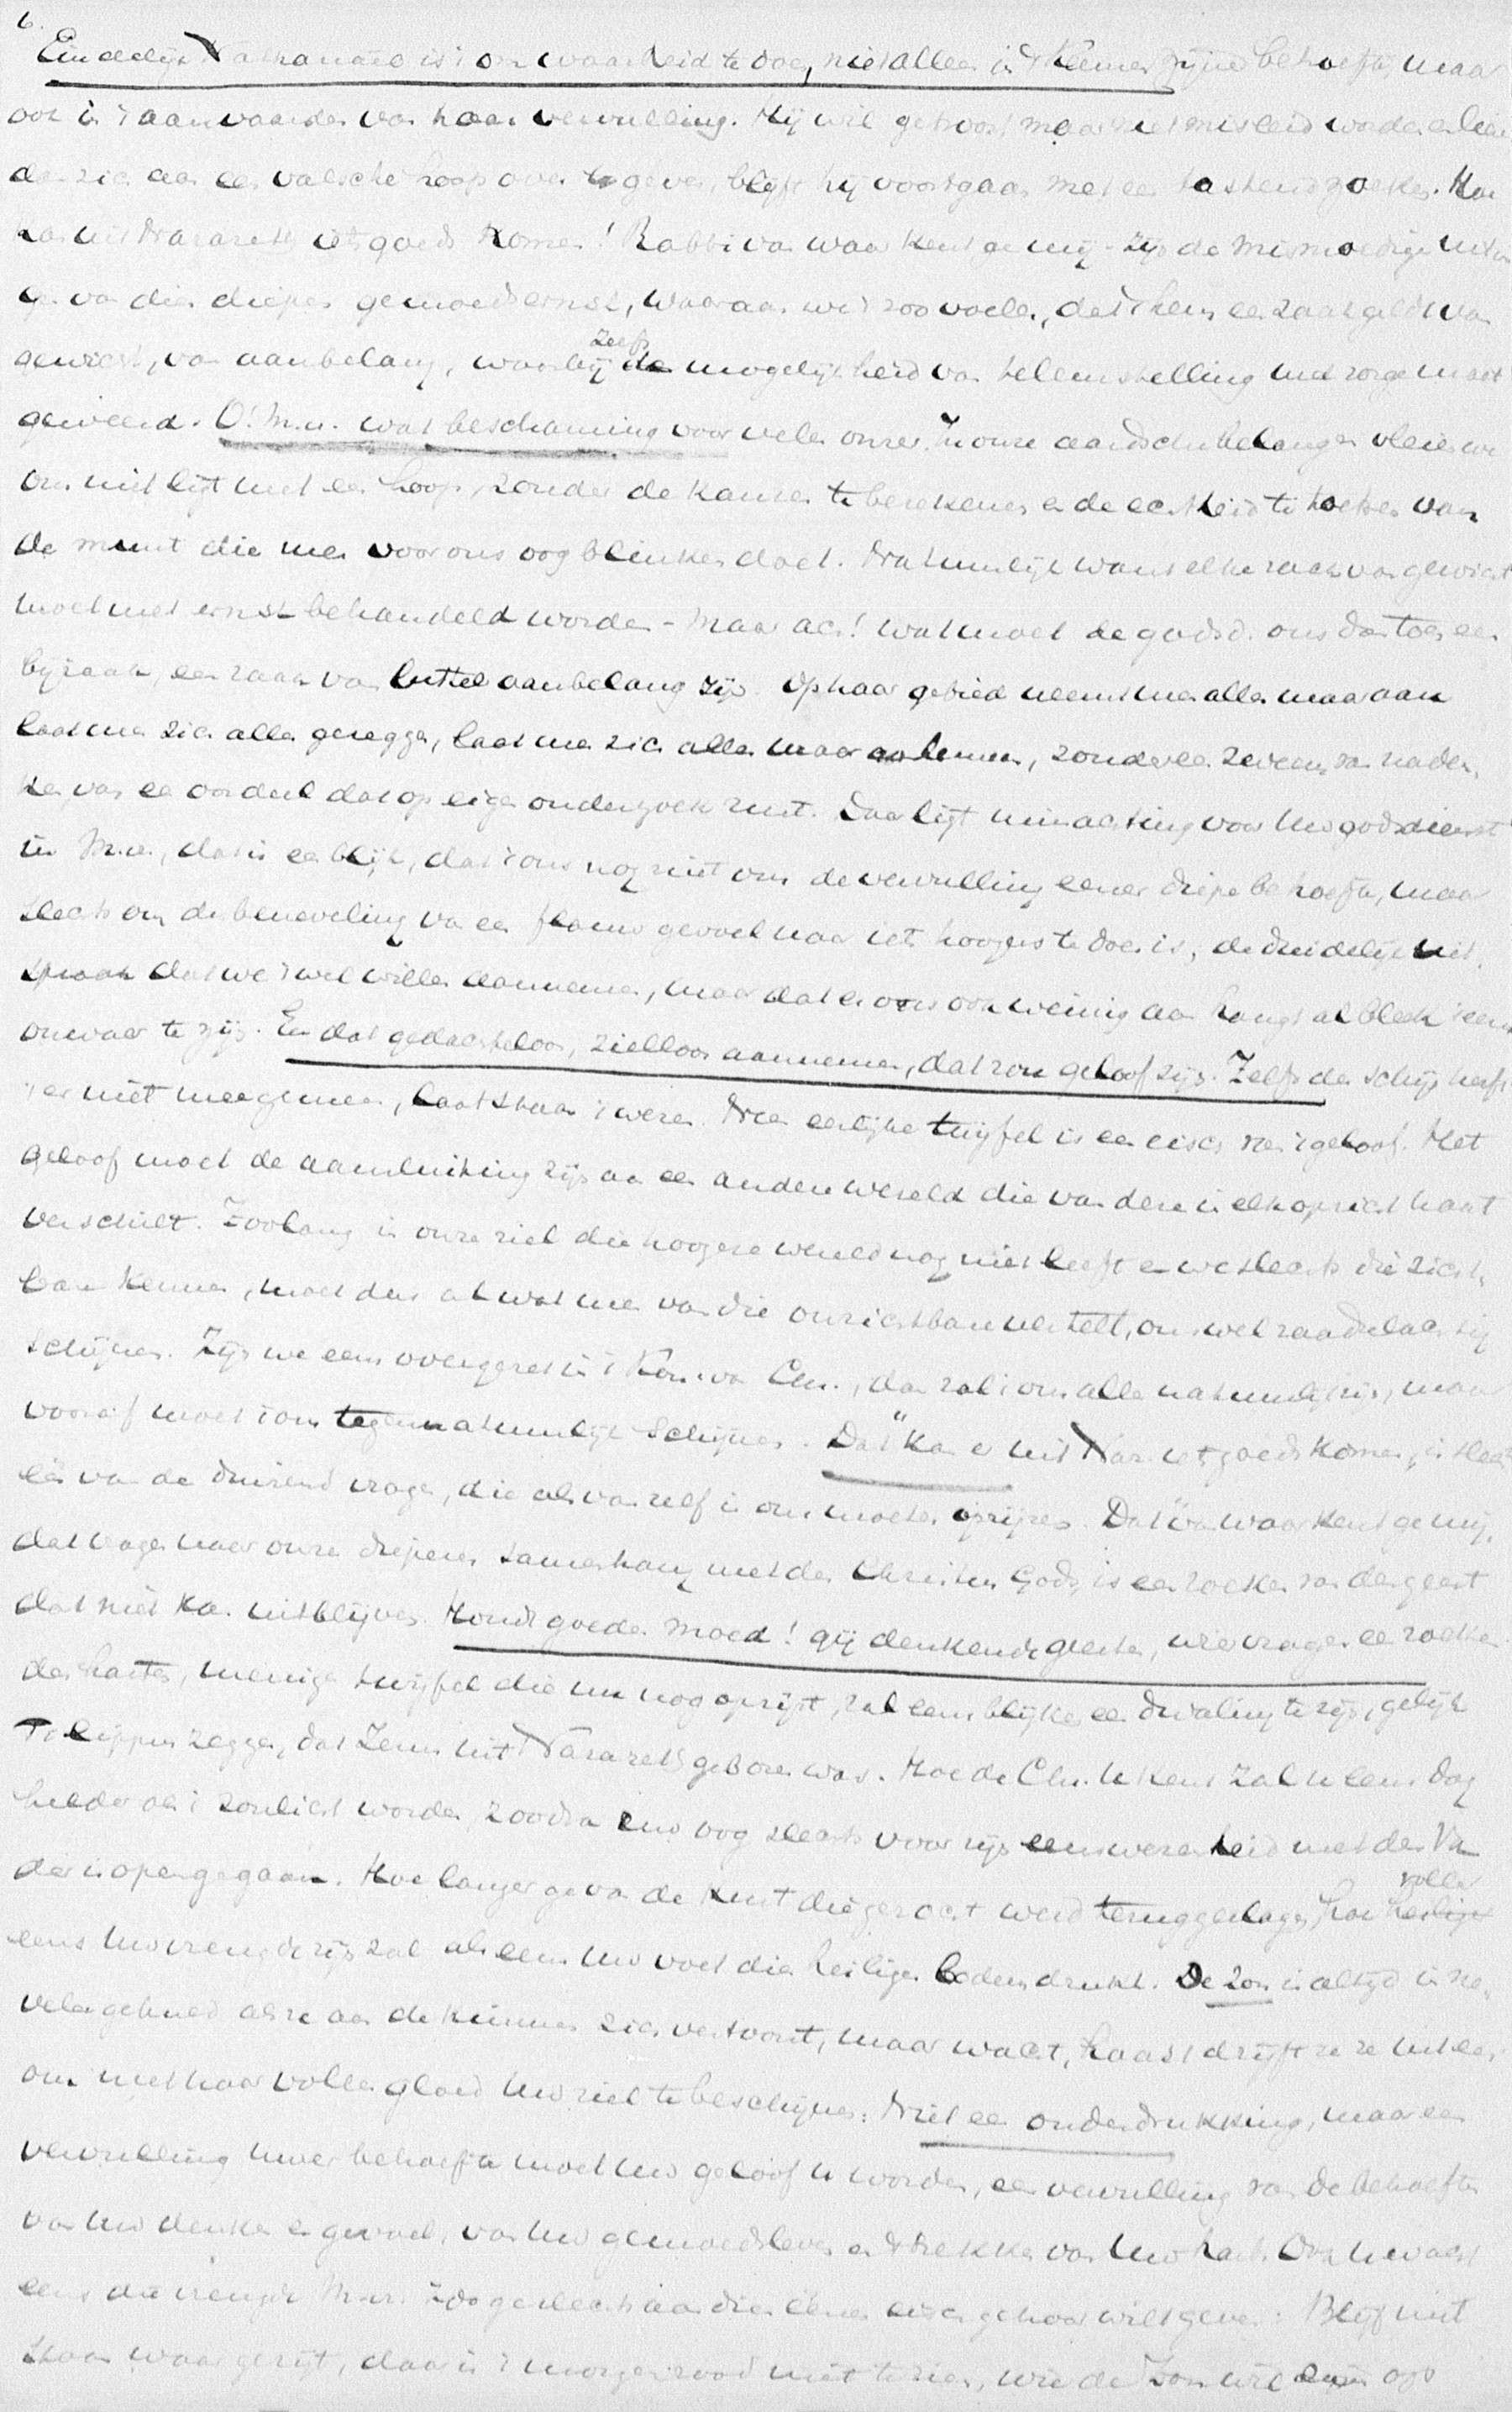 6.
Eindelijk Nathanaël is 't om waarheid te doen, niet alleen in 't kennen zijner behoefte, maar
ook in 't aanvaarden van haar vervulling. Hij wil getroost maar niet misleid worden en liever
dan zich aan een valsche hoop over te geven, blijft hij voortgaan met een tastend zoeken. Kan
kan uit Nazareth iets goeds komen! Rabbi van waar kent ge mij - zijn de mismoedige uitin
gen van dien diepen gemoedsernst, waaraan we 't zoo voelen, dat 't hem een zaak geldt van
gewicht, van aanbelang, waarbij zelfs de mogelijkheid van teleurstelling met zorg moet
geweerd. O! M.v. wat beschaming voor velen onzer. In onze aardsche belangen vleien we
ons niet ligt met een hoop, zonder de kansen te berekenen en de echtheid te toetsen van
de munt die men voor ons oog blinken doet. Natuurlijk want elke zaak van gewicht
moet met ernst behandeld worden - Maar ach! wat moet de godsd. ons dan toch een
bijzaak, een zaak van luttel aanbelang zijn. Op haar gebied neemt men alles maar aan
laat men zich alles gezeggen, laat men zich alles maar ontnemen, zonder een zweem van naden-
ken, van een oordeel dat op eigen onderzoek rust. Daar ligt minachting voor Uw godsdienst
in M.v., dat is een blijk, dat 't ons nog niet om de vervulling eener diepe behoefte, maar
slechts om de beneveling van een flauw gevoel naar iets hoogers te doen is, de duidelijke uit-
spraak dat we 't wel willen aannemen, maar dat er ons ook weinig aan hangt al bleek 't eens
onwaar te zijn. En dat gedachteloos, zielloos aannemen, dat zou geloof zijn. Zelfs den schijn heeft
't er niet mee gemeen, laat staan 't wezen. Neen eerlijke twijfel is een eisch van 't geloof. Het
geloof moet de aansluiting zijn aan een andere wereld die van deze in elk opzicht haast
verschilt. Zoolang in onze ziel die hoogere wereld nog niet leeft en we slechts die zicht-
bare kennen, moet dus al wat men van die onzichtbare vertelt, ons wel raadselachtig
schijnen. Zijn we eens overgezet in 't Kon. van Chr., dan zal 't ons alles natuurlijk zijn, maar
vooraf moet 't ons tegennatuurlijk schijnen. Dat "Kan er uit Naz. iets goeds komen", is slechts
één van de duizend vragen, die als van zelf in ons moeten oprijzen. Dat "van waar kent ge mij",
dat vragen naar onze diepere samenhang met den Christus Gods, is een zoeken van den geest
dat niet kan uitblijven. Houdt goeden moed! gij denkende geesten, wie vragen en zoeken
des harten, menige twijfel die nu nog oprijst, zal eens blijken een dwaling te zijn, gelijk
Filippus zeggen, dat Jezus uit Nazareth geboren was. Hoe de Chr. U kent zal U eens dag
helder als 't zonlicht worden, zoodra Uw oog slechts voor zijn eenswezenheid met den Va
der is opengegaan. Hoe langer ge van de kust die ge zocht werd teruggeslagen, hoe voller
eens Uw vreugde zijn zal als eens Uw voet dien heiligen bodem drukt. De zon is altijd in ne-
velen gehuld als ze aan de kimmen zich vertoont, maar wacht, haast drijft ze ze uiteen
om met haar vollen gloed Uw ziel te beschijnen: Niet een onderdrukking, maar een
vervulling Uwer behoeften moet Uw geloof U worden, een vervulling van de behoeften
van Uw denken en gevoel, van Uw gemoedsleven en trekken van Uw hart. Ook U wacht
eens die vreugde M.v. zoo ge slechts aan dien éénen eisch gehoor wilt geven: Blijf niet
staan waar ge zijt, daar is 't morgenrood niet te zien, wie de Zon wil zien op